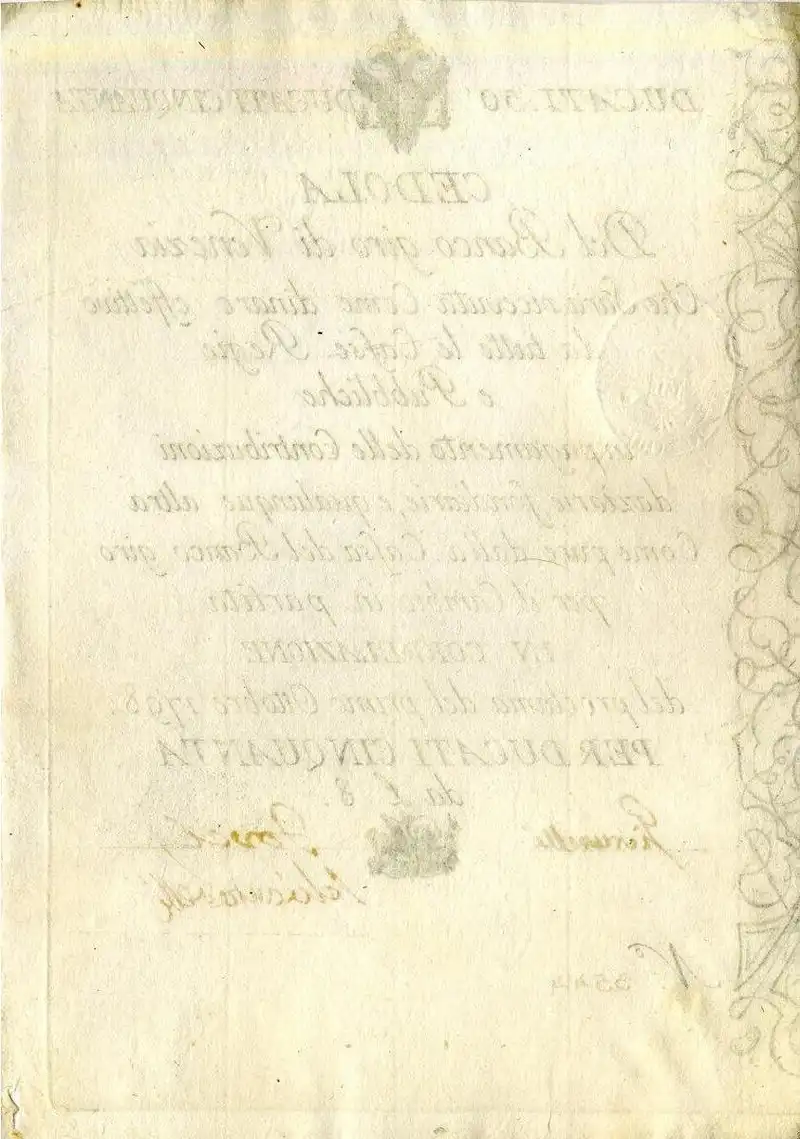 DUCATI CINQUANTA DUCATI . 50 DUCATI
CEDOLA
Del Banco giro di Venezia
Che Sara ricevuta Come dinaro effettivo
da tutte le Casse Regie
e Pubbliche
in pagamento delle Contribuzioni
daziarie fondiarie, e qualunque altra
Come pure dalla Cassa del Banco giro
per il Cambio in partita
IN CORRELAZIONE
del proclama del primo Ottobre 1798.
PER DUCATI CINQUANTA
da L 8.
N.º